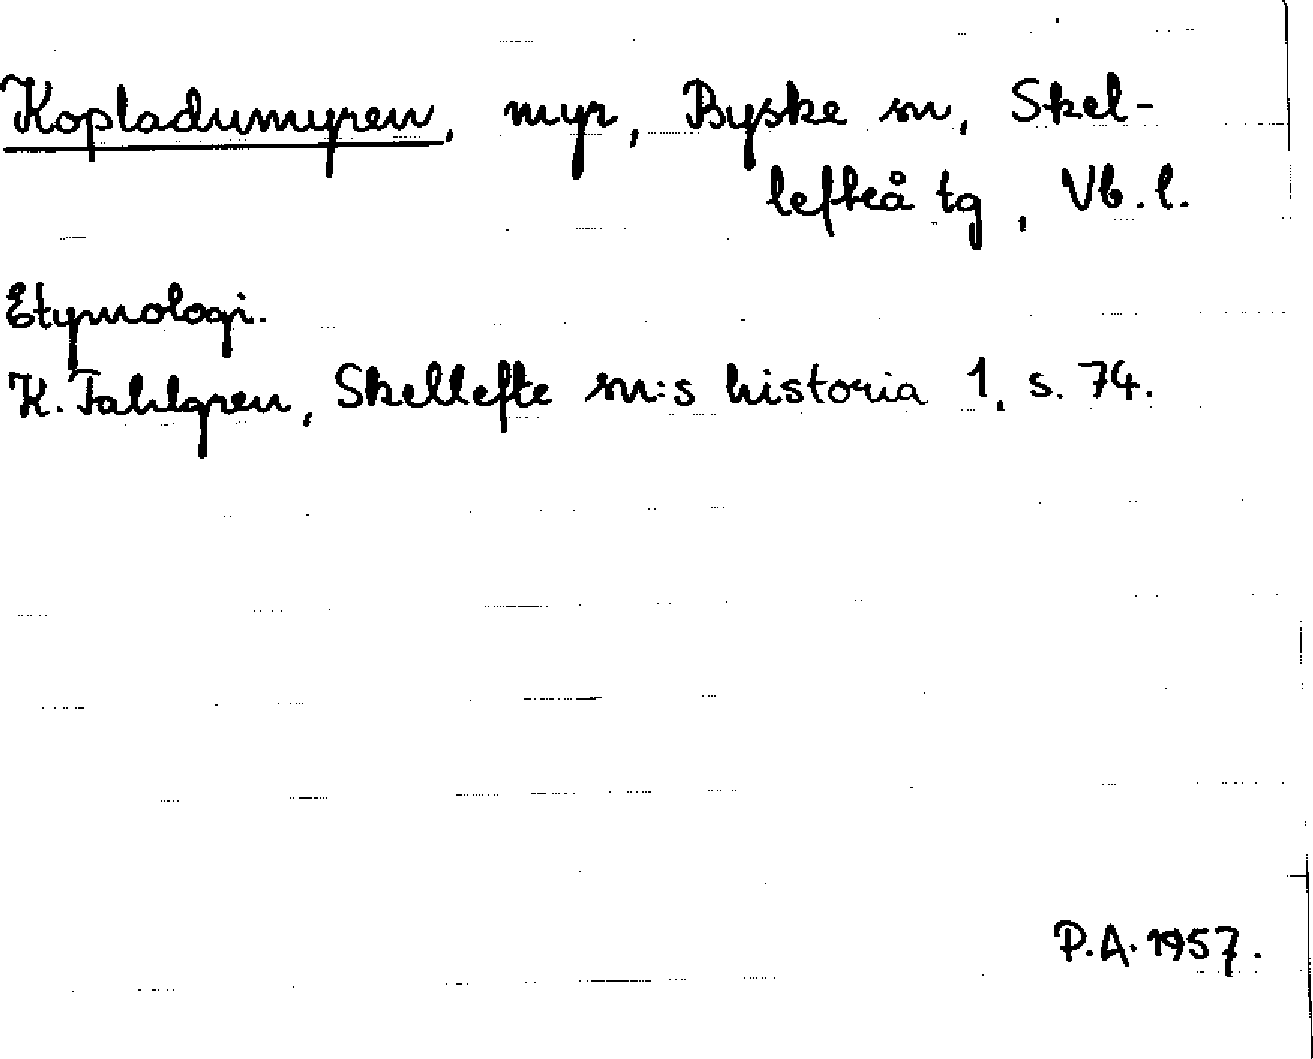 Kopladumyren, myr, Byske sn, Skel-
lefteå tg, Vb. l.
Etymologi.
K. Fahlgren, Skellefte sn:s historia 1, s. 74.
P.A. 1957.